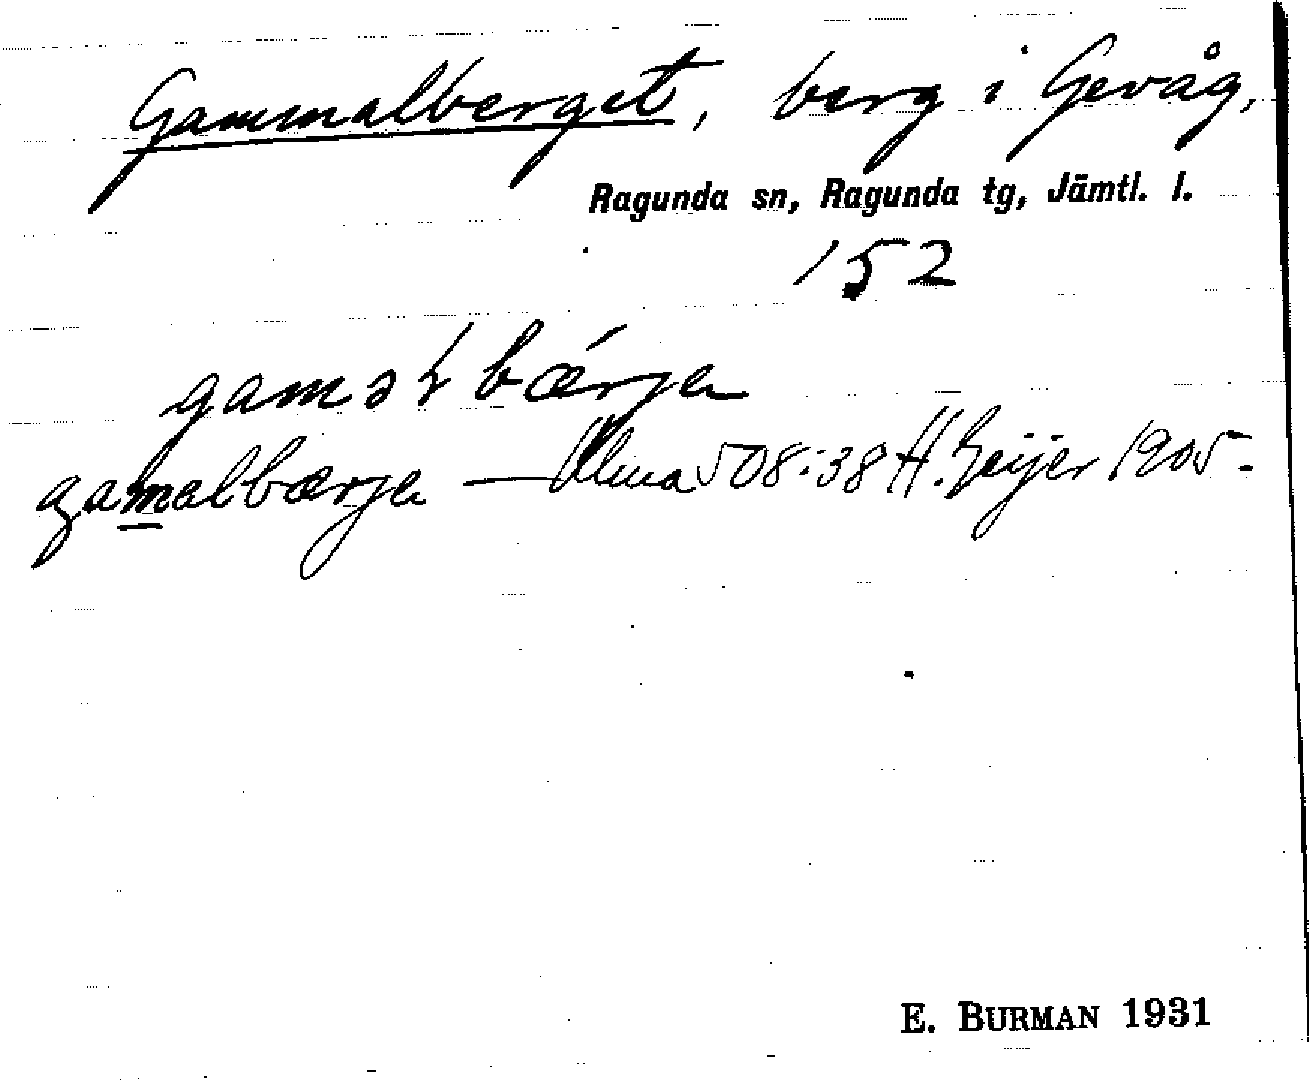 Gammalberget, berg i Gevåg,
Ragunda sn, Ragunda tg, Jämtl. l.
152
gaməɫbǽrjen
gamalbærjen — Ulma 508:38 H. Geijer 1905-
E. BURMAN 1931